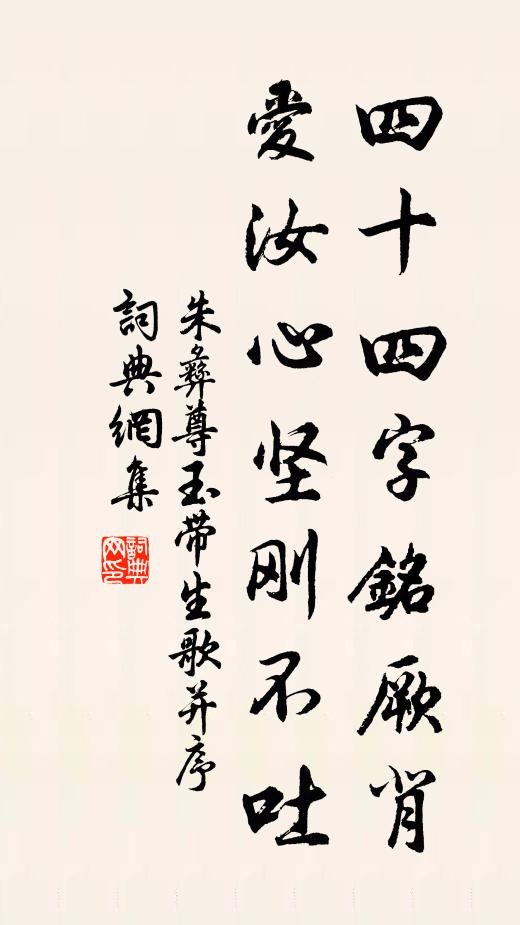 四十四字銘厥背
愛汝心坚刚不吐
朱彝尊玉带生歌并序
詞典網集
詞典网印